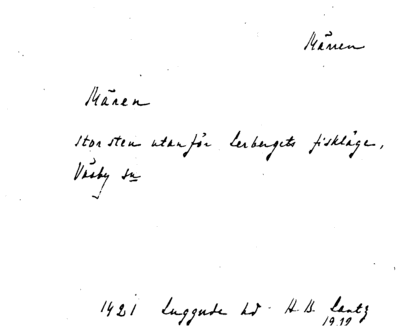 Mären
Mären
stor sten utanför Lerbergets fiskläge,
Väsby sn
1421 Luggude hd. H. B. Lantz
1919